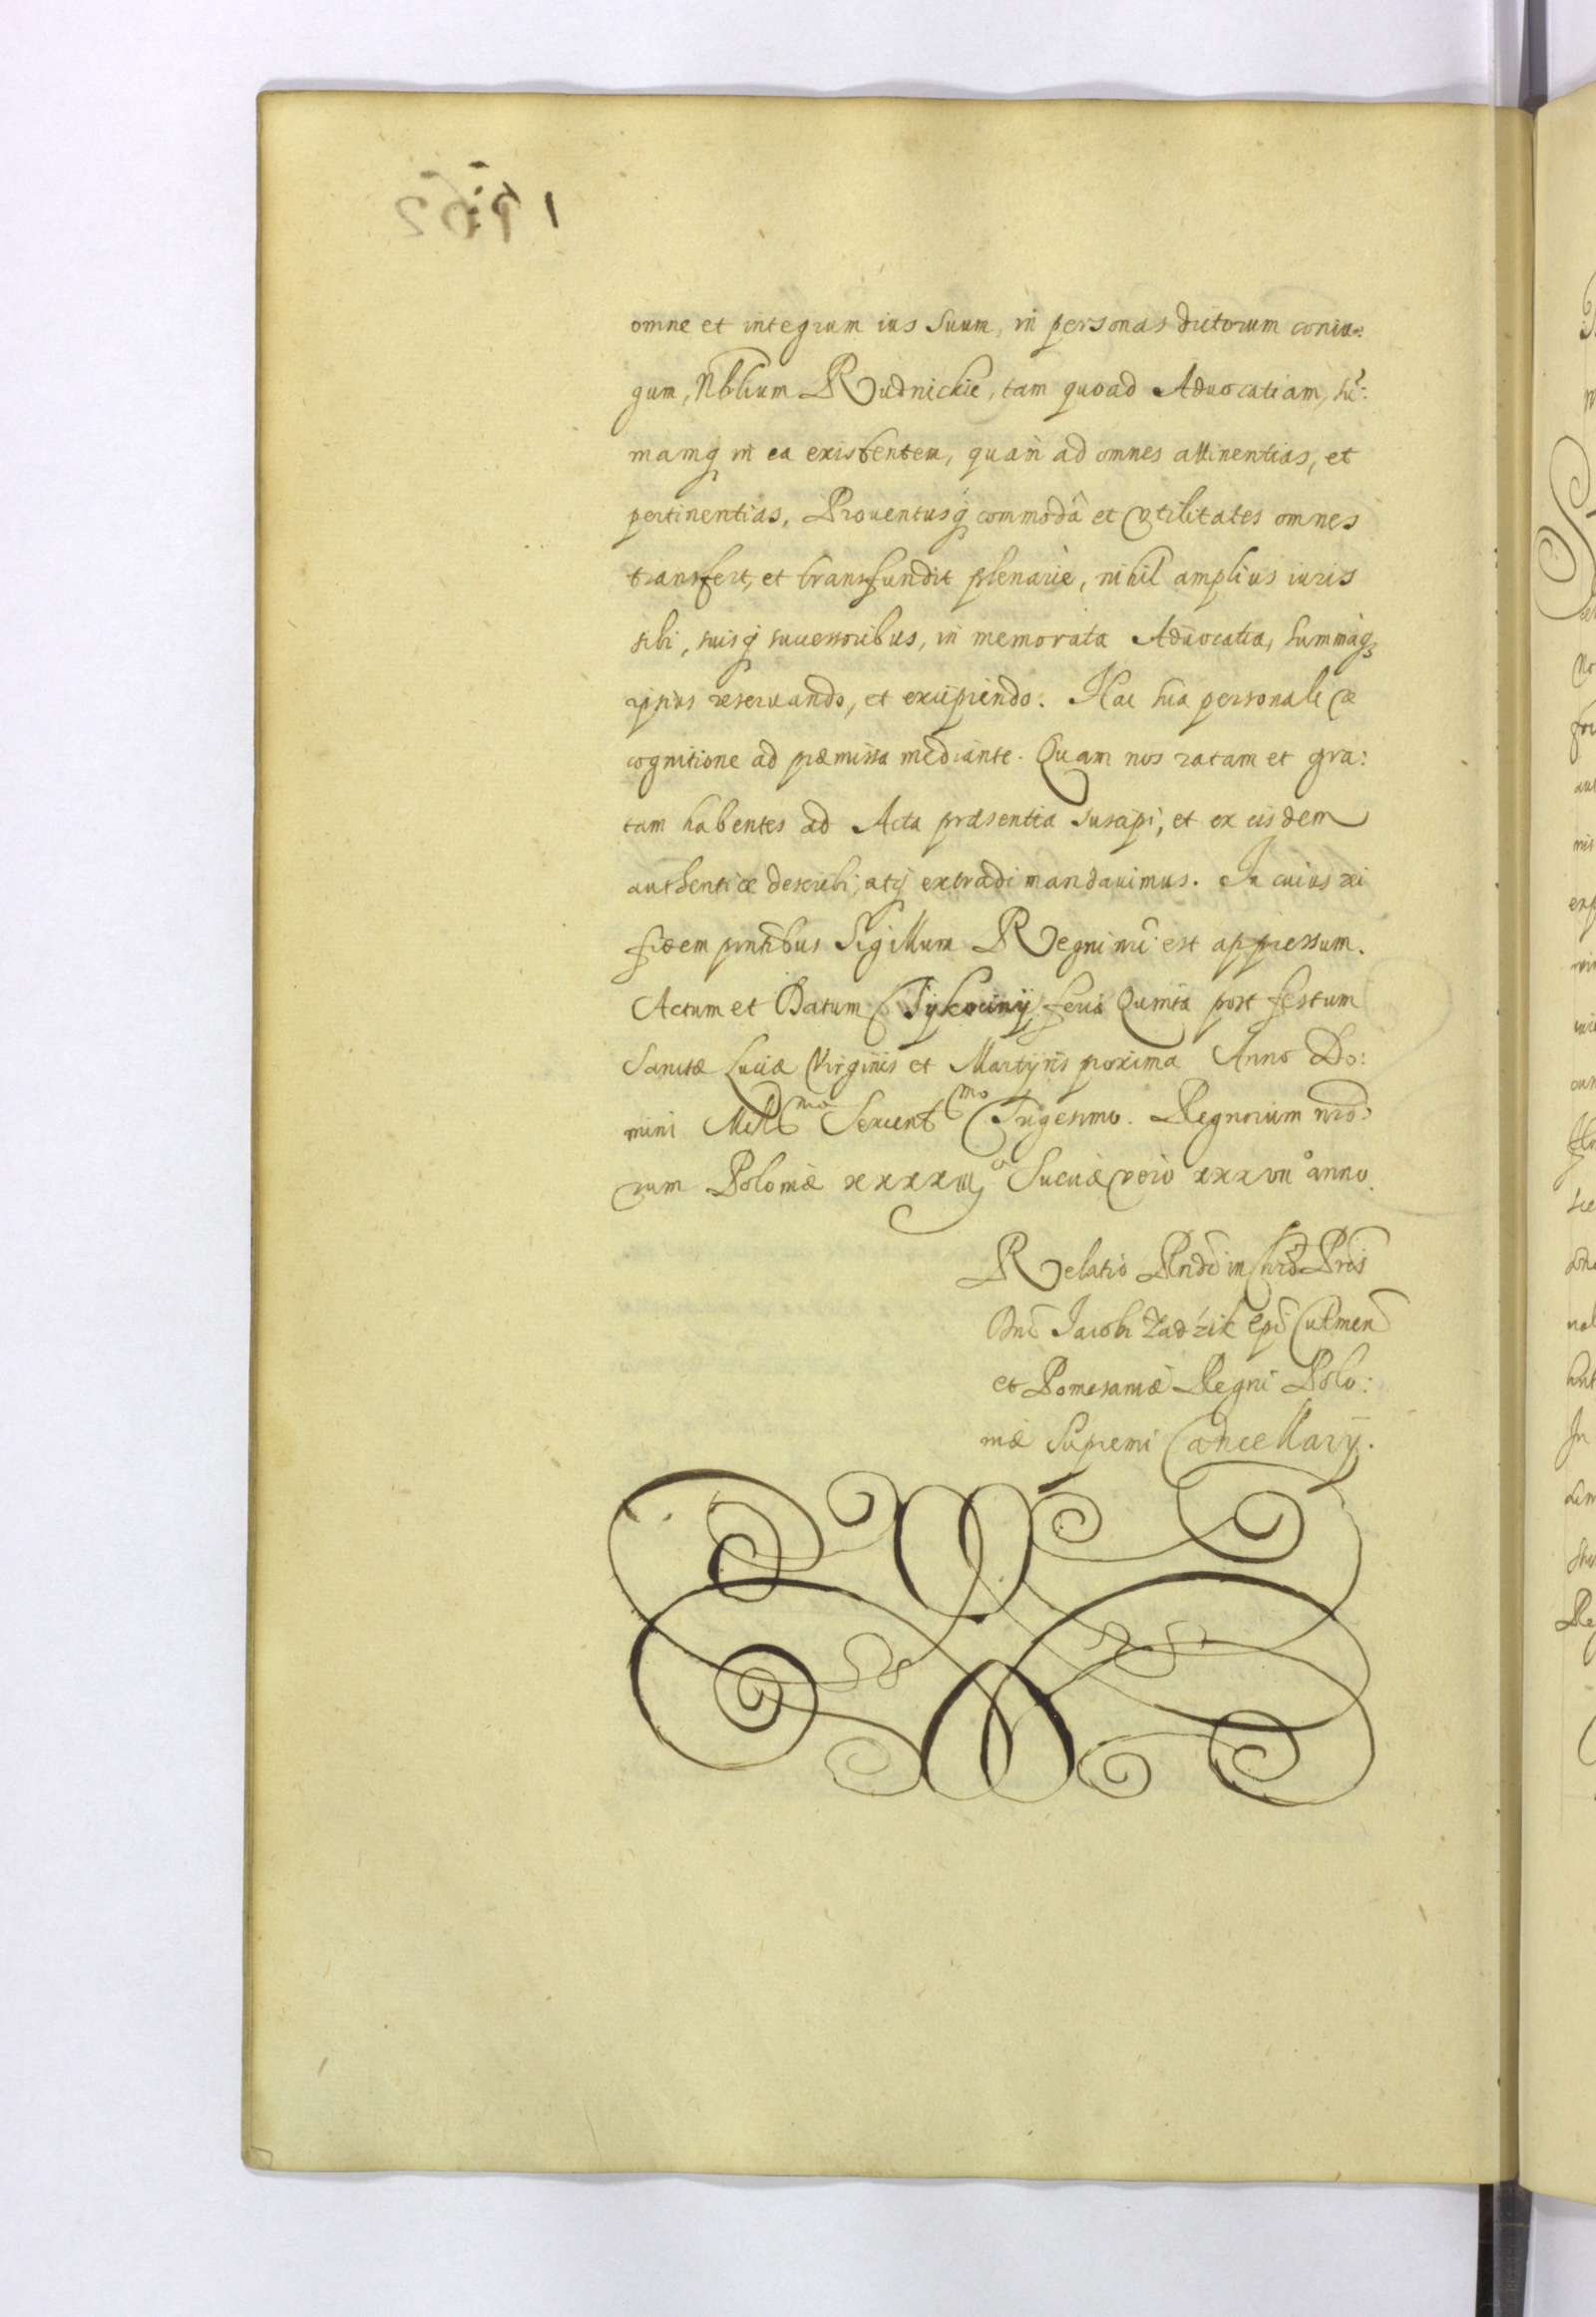 omne et integrum ius suum, in personas dictorum coniu:
gum, Nblium Rudnickie, tam quoad Aduocatiam, sũ:
mamq in ea existentem, quam ad omnes attinentias, et
pertinentias, Prouentusq commoda et vtilitates omnes
transfert, et transfundit plenarie, nihil amplius iuris
sibi, suisq successoribus, in memorata Aduocatia, summaq
ipsius reseruando, et excipiendo. Hac sua personali re
cognitione ad præmissa mediante. Quam nos ratam et gra:
tam habentes ad Acta præsentia suscipi, et ex eisdem
authenticæ describi, atq extradi mandauimus. In cuius rei
fidem pntibus Sigillum Regni nrĩ est appressum.
Actum et Datum Tykocinij feria Quinta post festum
Sanctæ Luciæ Virginis et Martyris proxima Anno Do:
mini Millmo Sexcentmo Trigesimo. Regnorum nrõ:
rum Poloniæ xxxxiijo Sueciæ vero xxxviio anno.
Relatio Rndĩ in Chrõ Pris
Dni Jacobi Zadzik Epi Culmen
et Pomesaniæ Regni Polo:
niæ Supremi Cancellarij.